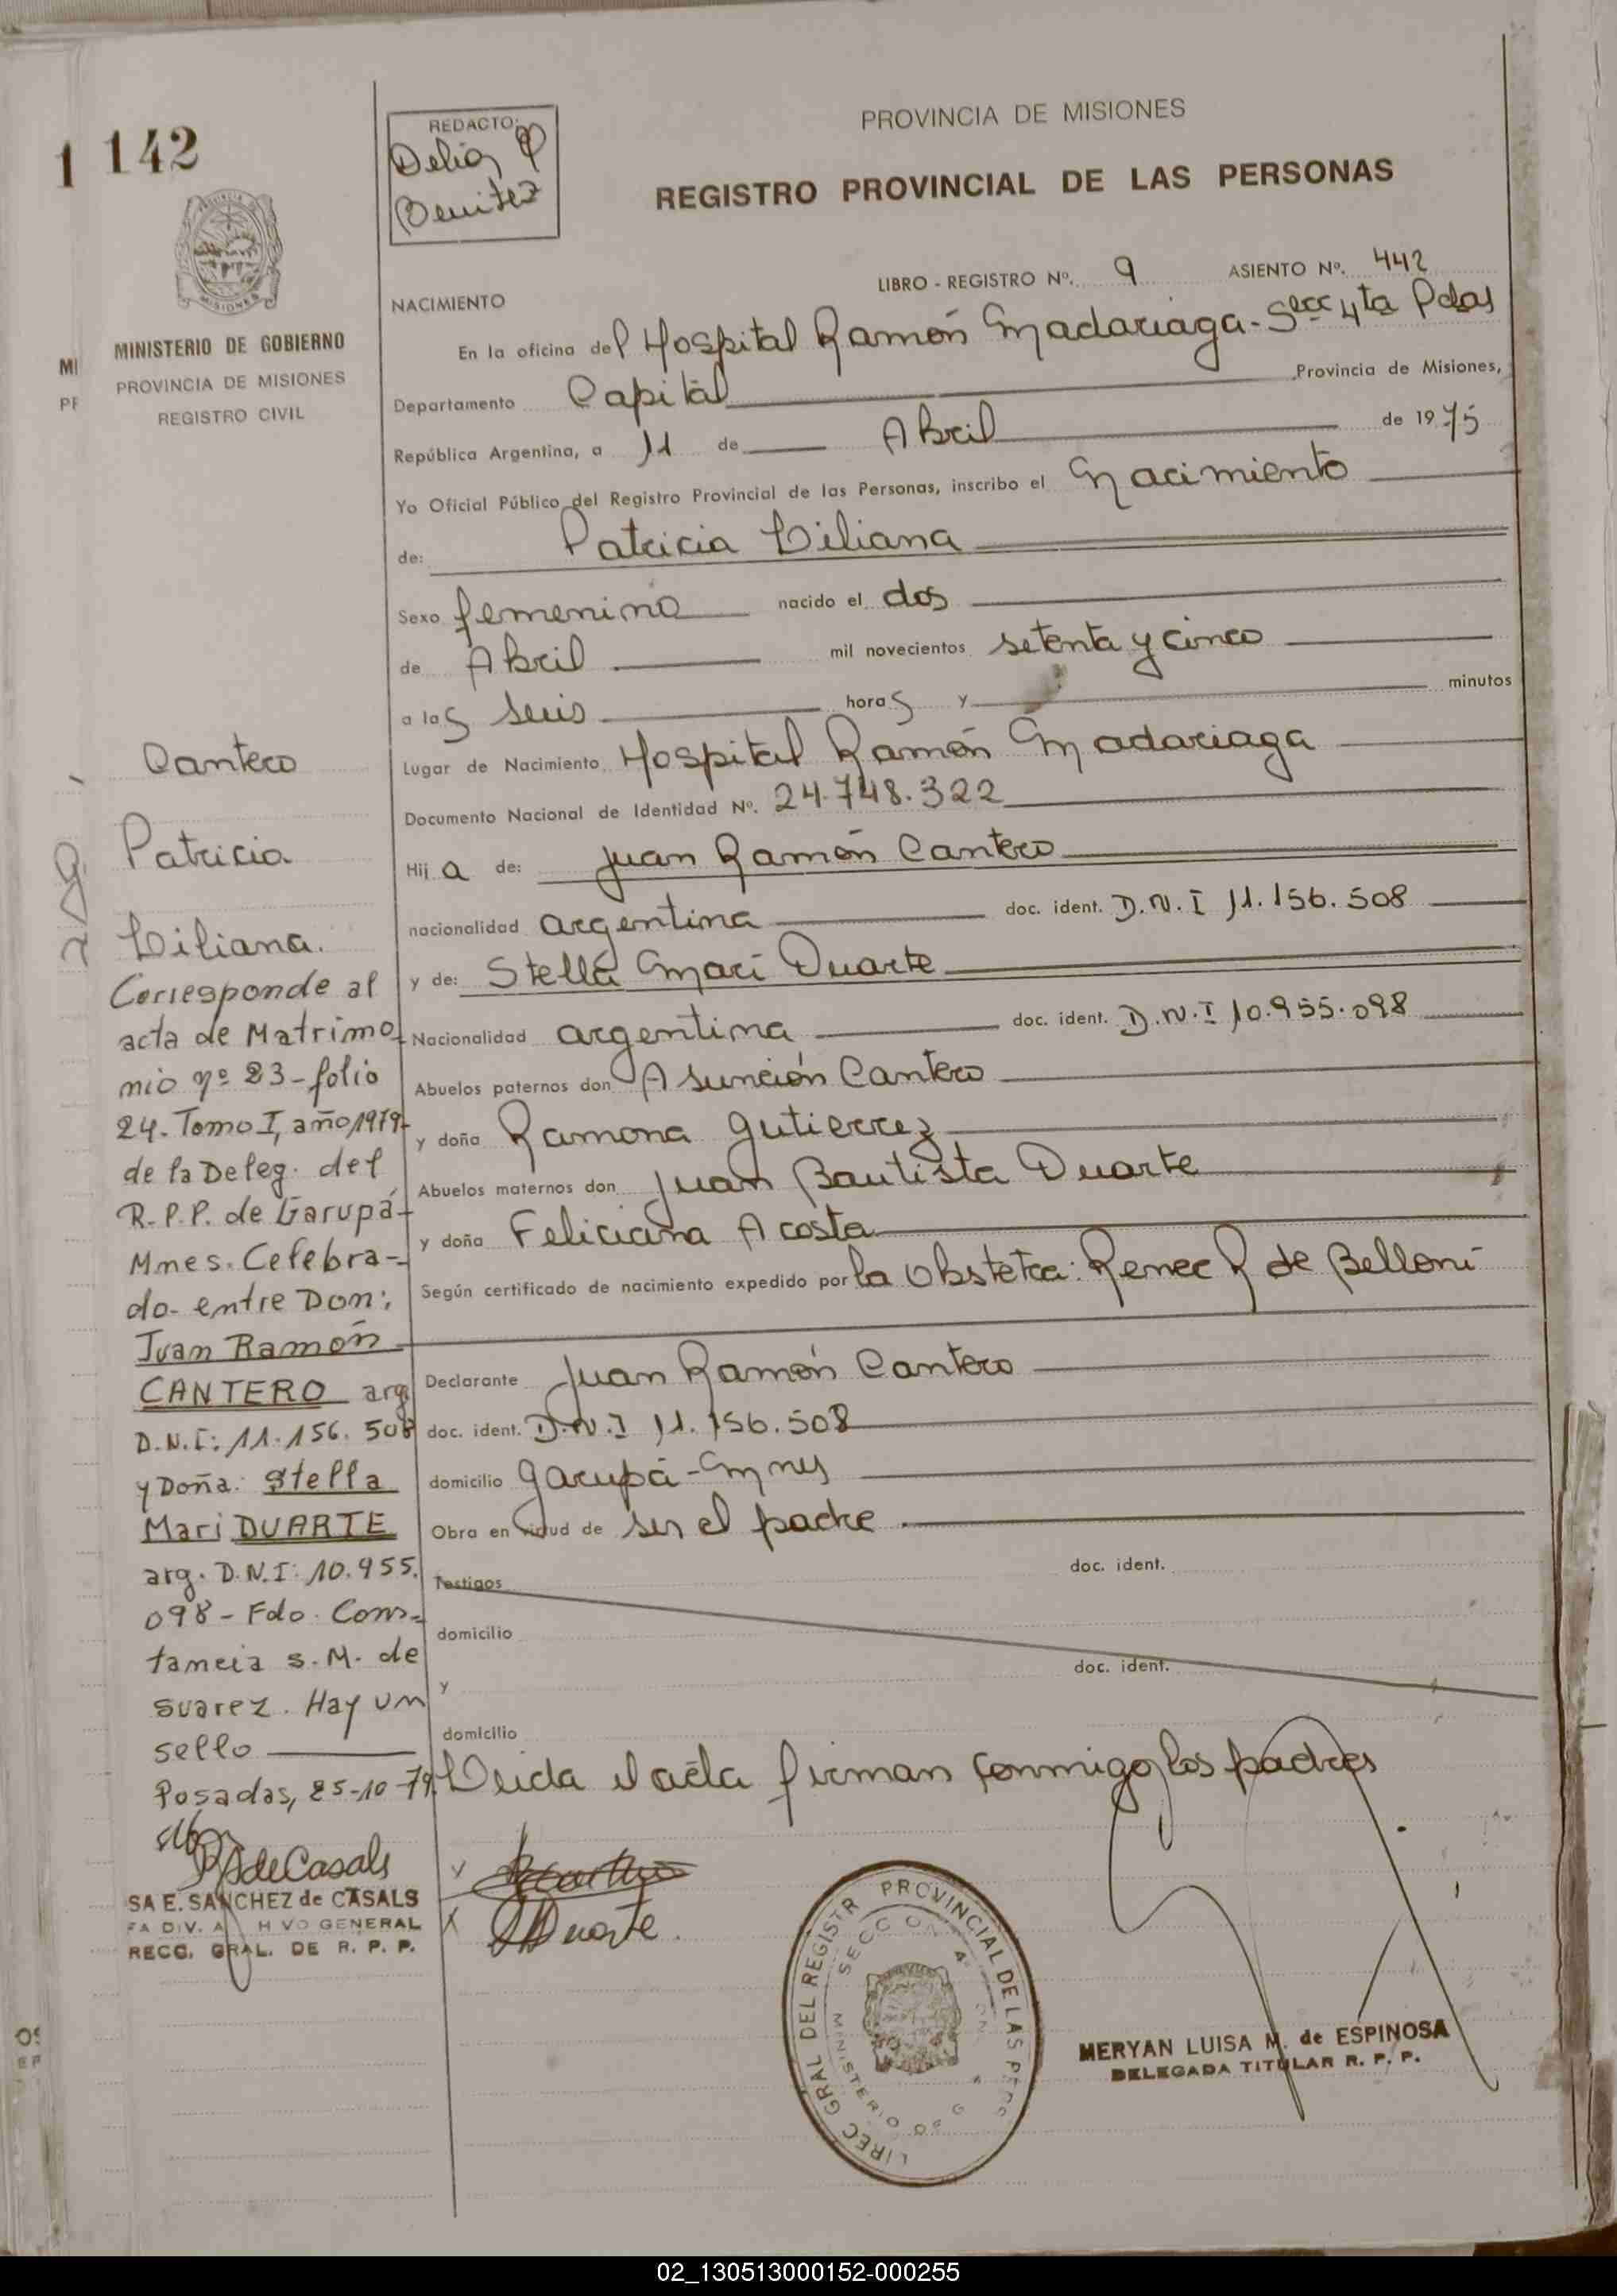 1 142
REDACTO:
Delia
Benitez
PROVINCIA DE MISIONES
REGISTRO PROVINCIAL DE LAS PERSONAS
MISIONES
MINISTERIO DE GOBIERNO
PROVINCIA DE MISIONES
REGISTRO CIVIL
LIBRO - REGISTRO Nº. 9 ASIENTO Nº. 442
NACIMIENTO
En la oficina del Hospital Ramón Madariaga - Secc 4ta Pdas
Departamento Capital Provincia de Misiones,
República Argentina, a 11 de Abril de 1975
Yo Oficial Público del Registro Provincial de las Personas, inscribo el Nacimiento
de: Patricia Liliana
Sexo femenino nacido el dos
de Abril mil novecientos setenta y cinco
a las seis horas y minutos
Lugar de Nacimiento Hospital Ramón Madariaga
Documento Nacional de Identidad Nº. 24.748.322
Hija de: Juan Ramón Cantero
nacionalidad argentina doc. ident. D.N.I 11.156.508
y de: Stella Mari Duarte
Nacionalidad argentina doc. ident. D.N.I 10.955.098
Abuelos paternos don Asunción Cantero
y doña Ramona Gutierrez
Abuelos maternos don Juan Bautista Duarte
y doña Feliciana Acosta
Según certificado de nacimiento expedido por la Obstetra: Renee R de Belloni
Declarante Juan Ramón Cantero
doc. ident. D.N.I 11.156.508
domicilio Garupá - Mnes
Obra en virtud de ser el padre
Testigos doc. ident.
domicilio
y doc. ident.
domicilio
Leida el acta firman conmigo los padres
Cantero
Patricia
Liliana.
Corresponde al
acta de Matrimo
nio nº 23 - folio
24. Tomo I, año 1979
de la Deleg. del
R.P.P. de Garupá
Mnes. Celebra-
do entre Don:
Juan Ramón
CANTERO arg
D.N.I: 11.156.508
y Doña: Stella
Mari DUARTE
arg. D.N.I: 10.955.
098 - Fdo. Cons-
tancia S.M. de
Suarez. Hay un
sello
Posadas, 25-10-79.
de Casals
SA E. SANCHEZ de CASALS
FA DIV. A H VO GENERAL
RECC. GRAL. DE R. P. P.
Duarte
LIREC GRAL DEL REGISTR PROVINCIAL DE LAS PERS
SECCION 4ª
MINISTERIO DE G
MERYAN LUISA M. de ESPINOSA
DELEGADA TITULAR R. P. P.
02_130513000152-000255